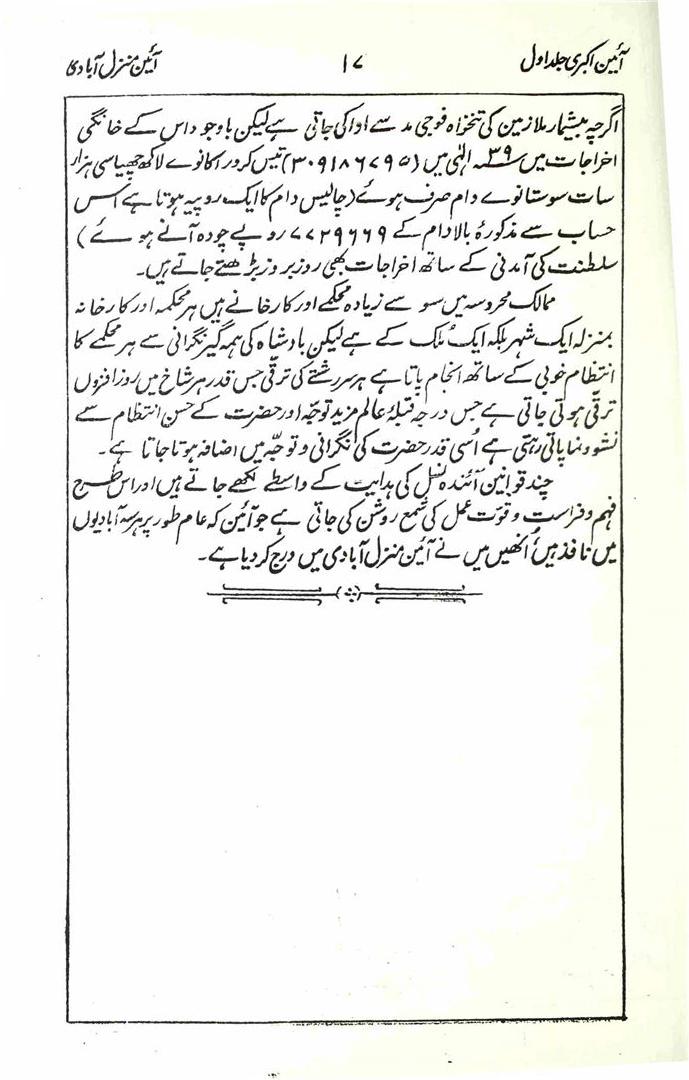 آئین اکبری جلد اول
۱۷
آئین منزل آبادی کا
اگرچہ بیشمار ملازمین کی تنخواہ فوجی مد سے ادا کی جاتی ہے لیکن باوجود اس کے خانگی
اخراجات میں ۳۹سنہ الٰہی میں (۳۰۹۱۸۶۷۹۵) تیس کرور اکانوے لاکھ چھیاسی ہزار
سات سو ستانوے دام صرف ہوئے (چالیس دام کا ایک روپیہ ہوتا ہے اس
حساب سے مذکورۂ بالا دام کے ۷۷۲۹۶۶۹ روپے چودہ آنے ہوئے)
سلطنت کی آمدنی کے ساتھ اخراجات بھی روز بروز بڑھتے جاتے ہیں۔
ممالک محروسہ میں سو سے زیادہ محکمے اور کارخانے ہیں ہر محکمہ اور کارخانہ
بمنزلہ ایک شہر بلکہ ایک مُلک کے ہے لیکن بادشاہ کی ہمہ گیر نگرانی سے ہر محکمے کا
انتظام خوبی کے ساتھ انجام پاتا ہے ہر سررشتے کی ترقی جس قدر ہر شاخ میں روز افزوں
ترقی ہوتی جاتی ہے جس درجہ قبلۂ عالم مزید توجّہ اور حضرت کے حسن انتظام سے
نشوونما پاتی رہتی ہے اُسی قدر حضرت کی نگرانی و توجّہ میں اضافہ ہوتا جاتا ہے۔
چند قوانین آئندہ نسل کی ہدایت کے واسطے لکھے جاتے ہیں اور اس طرح
فہم و فراست و قوّت عمل کی شمع روشن کی جاتی ہے جو آئین کہ عام طور پر ہر سہ آبادیوں
میں نافذ ہیں اُنھیں میں نے آئین منزل آبادی میں درج کر دیا ہے۔